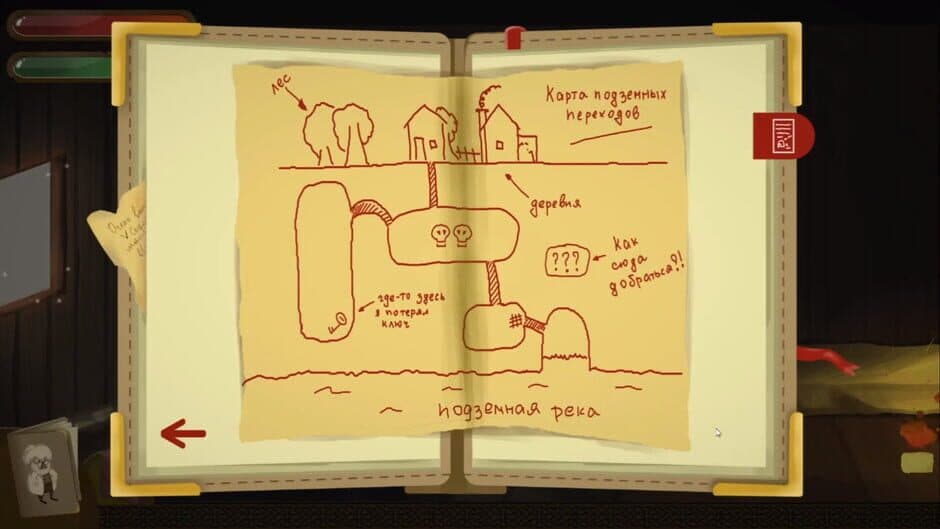 лес
Карта подземных
переходов
деревня
???
Как
сюда
добраться?!
где-то здесь
я потерял
ключ
подземная река